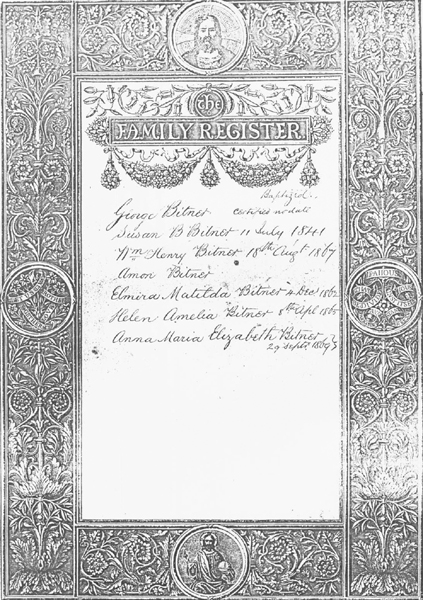 The
FAMILY REGISTER.
Baptized.
George Bitner certified no date
Susan B Bitner 11 July 1841
Wm Henry Bitner 18th Augt 1867
Amon Bitner
Elmira Matilda Bitner 4 Dec 1862
Helen Amelia Bitner 8th Apl 1865
Anna Maria Elizabeth Bitner
29 Septr 1869